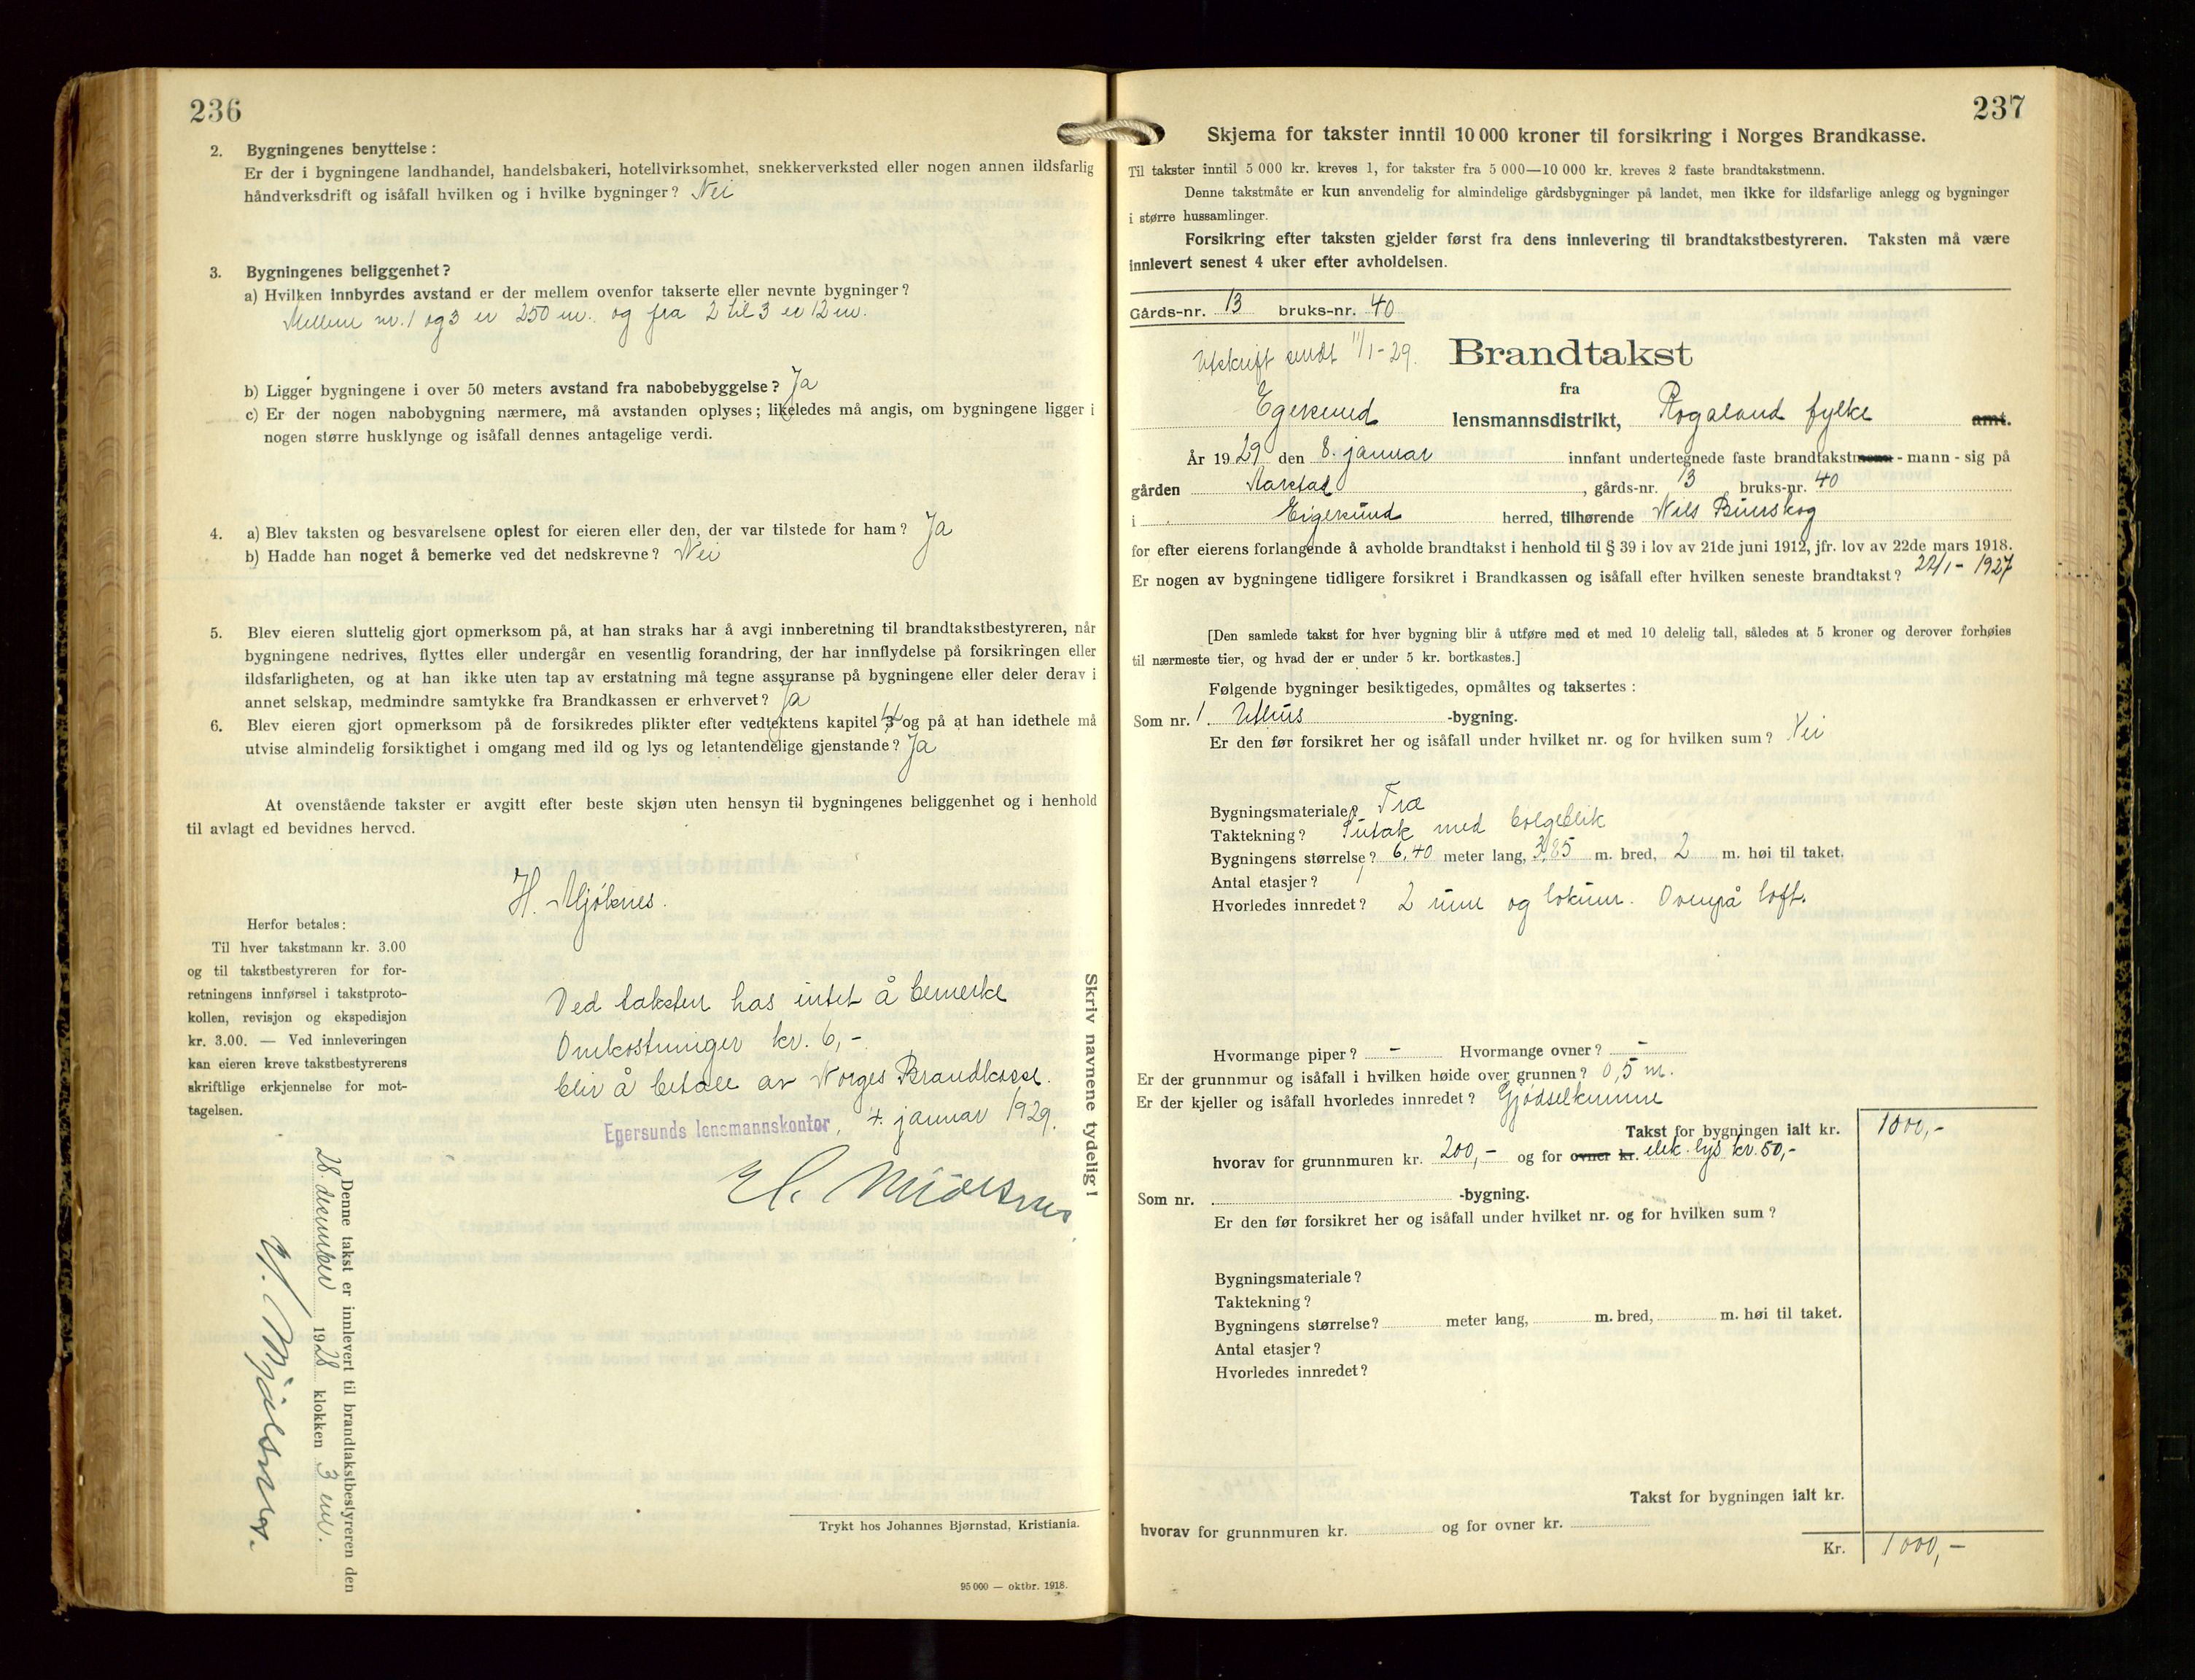 236
2. Bygningenes benyttelse:
Er der i bygningene landhandel, handelsbakeri, hotellvirksomhet, snekkerverksted eller nogen annen ildsfarlig
håndverksdrift og isåfall hvilken og i hvilke bygninger? Nei
3. Bygningenes beliggenhet?
a) Hvilken innbyrdes avstand er der mellem ovenfor takserte eller nevnte bygninger?
Mellem nr. 1 og 3 er 250 m. og fra 2 til 3 er 12 m.
b) Ligger bygningene i over 50 meters avstand fra nabobebyggelse? Ja
c) Er der nogen nabobygning nærmere, må avstanden oplyses; likeledes må angis, om bygningene ligger i
nogen større husklynge og isåfall dennes antagelige verdi.
4. a) Blev taksten og besvarelsene oplest for eieren eller den, der var tilstede for ham? Ja
b) Hadde han noget å bemerke ved det nedskrevne? Nei
5. Blev eieren sluttelig gjort opmerksom på, at han straks har å avgi innberetning til brandtakstbestyreren, når
bygningene nedrives, flyttes eller undergår en vesentlig forandring, der har innflydelse på forsikringen eller
ildsfarligheten, og at han ikke uten tap av erstatning må tegne assuranse på bygningene eller deler derav i
annet selskap, medmindre samtykke fra Brandkassen er erhvervet? Ja
6. Blev eieren gjort opmerksom på de forsikredes plikter efter vedtektens kapitel 3 4 og på at han idethele må
utvise almindelig forsiktighet i omgang med ild og lys og letantendelige gjenstande? Ja
At ovenstående takster er avgitt efter beste skjøn uten hensyn til bygningenes beliggenhet og i henhold
til avlagt ed bevidnes herved.
H. Mjølsnes.
Herfor betales:
Til hver takstmann kr. 3.00
og til takstbestyreren for for-
retningens innførsel i takstproto-
kollen, revisjon og ekspedisjon
kr. 3.00. — Ved innleveringen
kan eieren kreve takstbestyrerens
skriftlige erkjennelse for mot-
tagelsen.
Ved taksten has intet å bemerke
Omkostninger kr. 6,-
blir å betale av Norges Brandkasse.
Egersunds lensmannskontor, 4. januar 1929.
H. Mjølsnes
Skriv navnene tydelig!
Denne takst er innlevert til brandtakstbestyreren den
28. desember 1928 klokken 3 em.
H. Mjølsnes.
Trykt hos Johannes Bjørnstad, Kristiania.
95 000 — oktbr. 1918.
237
Skjema for takster inntil 10 000 kroner til forsikring i Norges Brandkasse.
Til takster inntil 5 000 kr. kreves 1, for takster fra 5 000—10 000 kr. kreves 2 faste brandtakstmenn.
Denne takstmåte er kun anvendelig for almindelige gårdsbygninger på landet, men ikke for ildsfarlige anlegg og bygninger
i større hussamlinger.
Forsikring efter taksten gjelder først fra dens innlevering til brandtakstbestyreren. Taksten må være
innlevert senest 4 uker efter avholdelsen.
Gårds-nr. 13 bruks-nr. 40
Utskrift sendt 11/1-29.
Brandtakst
fra
Egersund lensmannsdistrikt, Rogaland fylke amt.
År 1929 den 8. januar innfant undertegnede faste brandtakstmenn - mann - sig på
gården , gårds-nr. 13 bruks-nr. 40
i Eigersund herred, tilhørende Nils
for efter eierens forlangende å avholde brandtakst i henhold til § 39 i lov av 21de juni 1912, jfr. lov av 22de mars 1918.
Er nogen av bygningene tidligere forsikret i Brandkassen og isåfall efter hvilken seneste brandtakst? 22/1 - 1927
[Den samlede takst for hver bygning blir å utføre med et med 10 delelig tall, således at 5 kroner og derover forhøies
til nærmeste tier, og hvad der er under 5 kr. bortkastes.]
Følgende bygninger besiktigedes, opmåltes og taksertes:
Som nr. 1. Uthus -bygning.
Er den før forsikret her og isåfall under hvilket nr. og for hvilken sum? Nei
Bygningsmateriale? Træ
Taktekning? Sutak med bølgeblik
Bygningens størrelse? 6,40 meter lang, 3,85 m. bred, 2 m. høi til taket.
Antal etasjer? 1
Hvorledes innredet? 2 rum og lokum. Ovenpå loft.
Hvormange piper? - Hvormange ovner? -
Er der grunnmur og isåfall i hvilken høide over grunnen? 0,5 m.
Er der kjeller og isåfall hvorledes innredet? Gjødselkumme
Takst for bygningen ialt kr. 1000,-
hvorav for grunnmuren kr. 200,- og for ovner kr. elek. lys kr. 50,-
Som nr. -bygning.
Er den før forsikret her og isåfall under hvilket nr. og for hvilken sum?
Bygningsmateriale?
Taktekning?
Bygningens størrelse? meter lang, m. bred, m. høi til taket.
Antal etasjer?
Hvorledes innredet?
Takst for bygningen ialt kr.
hvorav for grunnmuren kr. og for ovner kr.
Kr. 1000,-